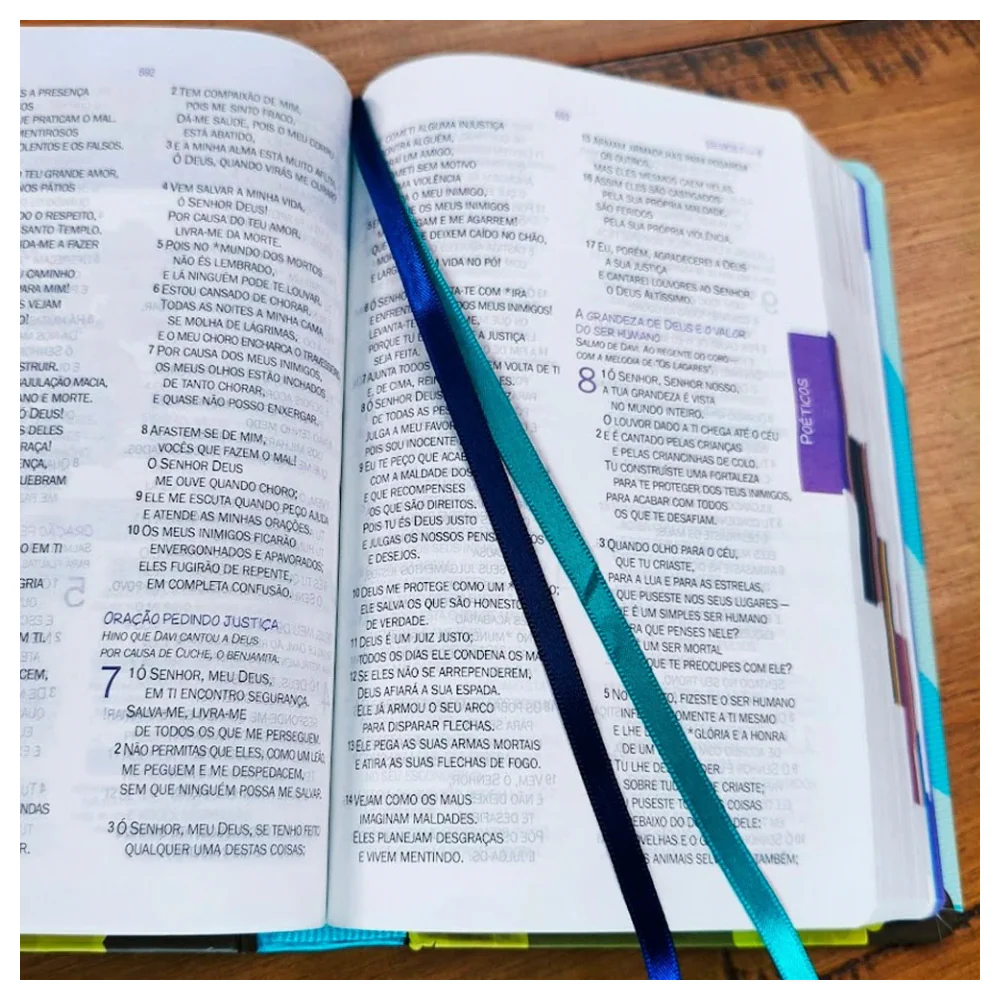 S A PRESENÇA
OS
E PRATICAM O MAL.
MENTIROSOS
OLENTOS E OS FALSOS.
TEU GRANDE AMOR,
NOS PÁTIOS
DO O RESPEITO,
SANTO TEMPLO.
DA-ME A FAZER
CAMINHO
PARA MIM!
S VEJAM
O!
STRUIR.
AJULAÇÃO MACIA,
ANO E MORTE.
Ó DEUS!
S DELES
RAÇA!
ENÇA,
QUEBRAM
O EM TI
GRIA
M TI.
CEM,
NDAS
R.
692
2 TEM COMPAIXÃO DE MIM,
POIS ME SINTO FRACO.
DÁ-ME SAÚDE, POIS O MEU CORPO
ESTÁ ABATIDO,
3 E A MINHA ALMA ESTÁ MUITO AFLITA.
Ó DEUS, QUANDO VIRÁS ME CURAR?
4 VEM SALVAR A MINHA VIDA,
Ó SENHOR DEUS!
POR CAUSA DO TEU AMOR,
LIVRA-ME DA MORTE.
5 POIS NO *MUNDO DOS MORTOS
NÃO ÉS LEMBRADO,
E LÁ NINGUÉM PODE TE LOUVAR.
6 ESTOU CANSADO DE CHORAR.
TODAS AS NOITES A MINHA CAMA
SE MOLHA DE LÁGRIMAS,
E O MEU CHORO ENCHARCA O TRAVESSEIRO.
7 POR CAUSA DOS MEUS INIMIGOS,
OS MEUS OLHOS ESTÃO INCHADOS
DE TANTO CHORAR,
E QUASE NÃO POSSO ENXERGAR.
8 AFASTEM-SE DE MIM,
VOCÊS QUE FAZEM O MAL!
O SENHOR DEUS
ME OUVE QUANDO CHORO;
9 ELE ME ESCUTA QUANDO PEÇO AJUDA
E ATENDE AS MINHAS ORAÇÕES.
10 OS MEUS INIMIGOS FICARÃO
ENVERGONHADOS E APAVORADOS;
ELES FUGIRÃO DE REPENTE,
EM COMPLETA CONFUSÃO.
ORAÇÃO PEDINDO JUSTIÇA
HINO QUE DAVI CANTOU A DEUS
POR CAUSA DE CUCHE, O BENJAMITA.
7 1 Ó SENHOR, MEU DEUS,
EM TI ENCONTRO SEGURANÇA.
SALVA-ME, LIVRA-ME
DE TODOS OS QUE ME PERSEGUEM.
2 NÃO PERMITAS QUE ELES, COMO UM LEÃO,
ME PEGUEM E ME DESPEDACEM,
SEM QUE NINGUÉM POSSA ME SALVAR.
3 Ó SENHOR, MEU DEUS, SE TENHO FEITO
QUALQUER UMA DESTAS COISAS:
COMETI ALGUMA INJUSTIÇA
ALGUÉM,
UM AMIGO,
SEM MOTIVO
VIOLÊNCIA
O MEU INIMIGO,
OS MEUS INIMIGOS
E ME AGARREM!
DEIXEM CAÍDO NO CHÃO,
VIDA NO PÓ!
6 Ó SENHOR TA-TE COM *IRA
E ENFREN DOS MEUS INIMIGOS!
LEVANTA-TE ME,
PORQUE TU A JUSTIÇA
SEJA FEITA.
7 AJUNTA TODOS EM VOLTA DE TI
E, DE CIMA, REIN ES.
8 Ó SENHOR DEUS
DE TODAS AS PES
JULGA A MEU FAVOR
POIS SOU INOCENTE
9 EU TE PEÇO QUE ACAB
COM A MALDADE DOS
E QUE RECOMPENSES
OS QUE SÃO DIREITOS.
POIS TU ÉS DEUS JUSTO
E JULGAS OS NOSSOS PENS
E DESEJOS.
10 DEUS ME PROTEGE COMO UM
ELE SALVA OS QUE SÃO HONESTOS
DE VERDADE.
11 DEUS É UM JUIZ JUSTO;
TODOS OS DIAS ELE CONDENA OS MA
12 SE ELES NÃO SE ARREPENDEREM,
DEUS AFIARÁ A SUA ESPADA.
ELE JÁ ARMOU O SEU ARCO
PARA DISPARAR FLECHAS.
13 ELE PEGA AS SUAS ARMAS MORTAIS
E ATIRA AS SUAS FLECHAS DE FOGO.
14 VEJAM COMO OS MAUS
IMAGINAM MALDADES.
ELES PLANEJAM DESGRAÇAS
E VIVEM MENTINDO.
15 ARMAM ARMADILHAS PARA PEGAREM
OS OUTROS,
MAS ELES MESMOS CAEM NELAS.
16 ASSIM ELES SÃO CASTIGADOS
PELA SUA PRÓPRIA MALDADE,
SÃO FERIDOS
PELA SUA PRÓPRIA VIOLÊNCIA.
17 EU, PORÉM, AGRADECEREI A DEUS
A SUA JUSTIÇA
E CANTAREI LOUVORES AO SENHOR,
O DEUS ALTÍSSIMO.
A GRANDEZA DE DEUS E O VALOR
DO SER HUMANO
SALMO DE DAVI. AO REGENTE DO CORO —
COM A MELODIA DE "OS LAGARES".
8 1 Ó SENHOR, SENHOR NOSSO,
A TUA GRANDEZA É VISTA
NO MUNDO INTEIRO.
O LOUVOR DADO A TI CHEGA ATÉ O CÉU
2 E É CANTADO PELAS CRIANÇAS
E PELAS CRIANCINHAS DE COLO.
TU CONSTRUÍSTE UMA FORTALEZA
PARA TE PROTEGER DOS TEUS INIMIGOS,
PARA ACABAR COM TODOS
OS QUE TE DESAFIAM.
3 QUANDO OLHO PARA O CÉU,
QUE TU CRIASTE,
PARA A LUA E PARA AS ESTRELAS,
QUE PUSESTE NOS SEUS LUGARES —
E É UM SIMPLES SER HUMANO
RA QUE PENSES NELE?
UM SER MORTAL
QUE TE PREOCUPES COM ELE?
5 NO TO, FIZESTE O SER HUMANO
INFE OMENTE A TI MESMO
E LHE *GLÓRIA E A HONRA
DE UM
TU LHE DE DER
SOBRE TUD E CRIASTE;
PUSESTE TO COISAS
EBAIXO DO DELE:
VELHAS E O
S ANIMAIS SEL TAMBÉM;
POÉTICOS